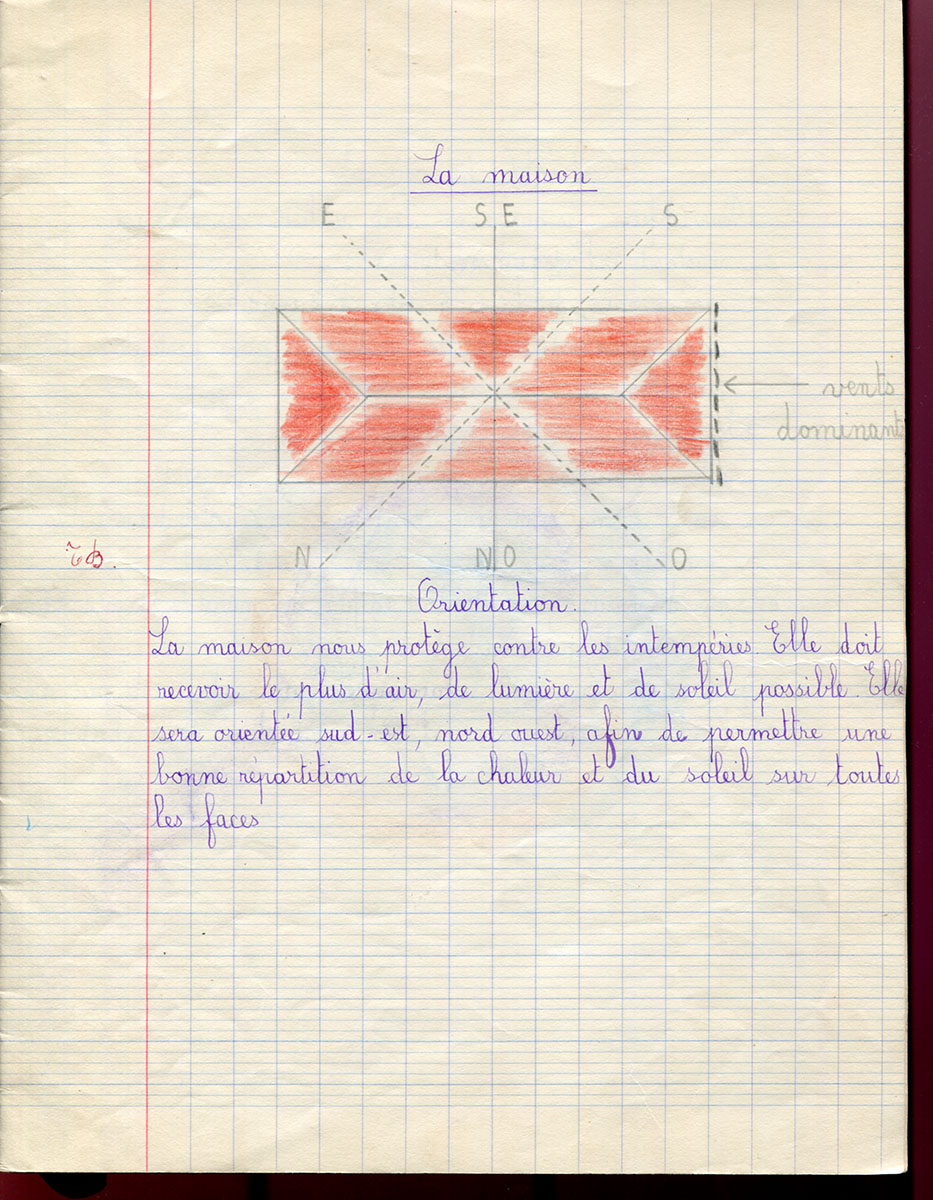 La maison
E S E S
vents
dominants
N NO O
TB.
Orientation.
La maison nous protège contre les intempéries. Elle doit
recevoir le plus d'air, de lumière et de soleil possible. Elle
sera orientée sud-est, nord ouest, afin de permettre une
bonne répartition de la chaleur et du soleil sur toutes
les faces